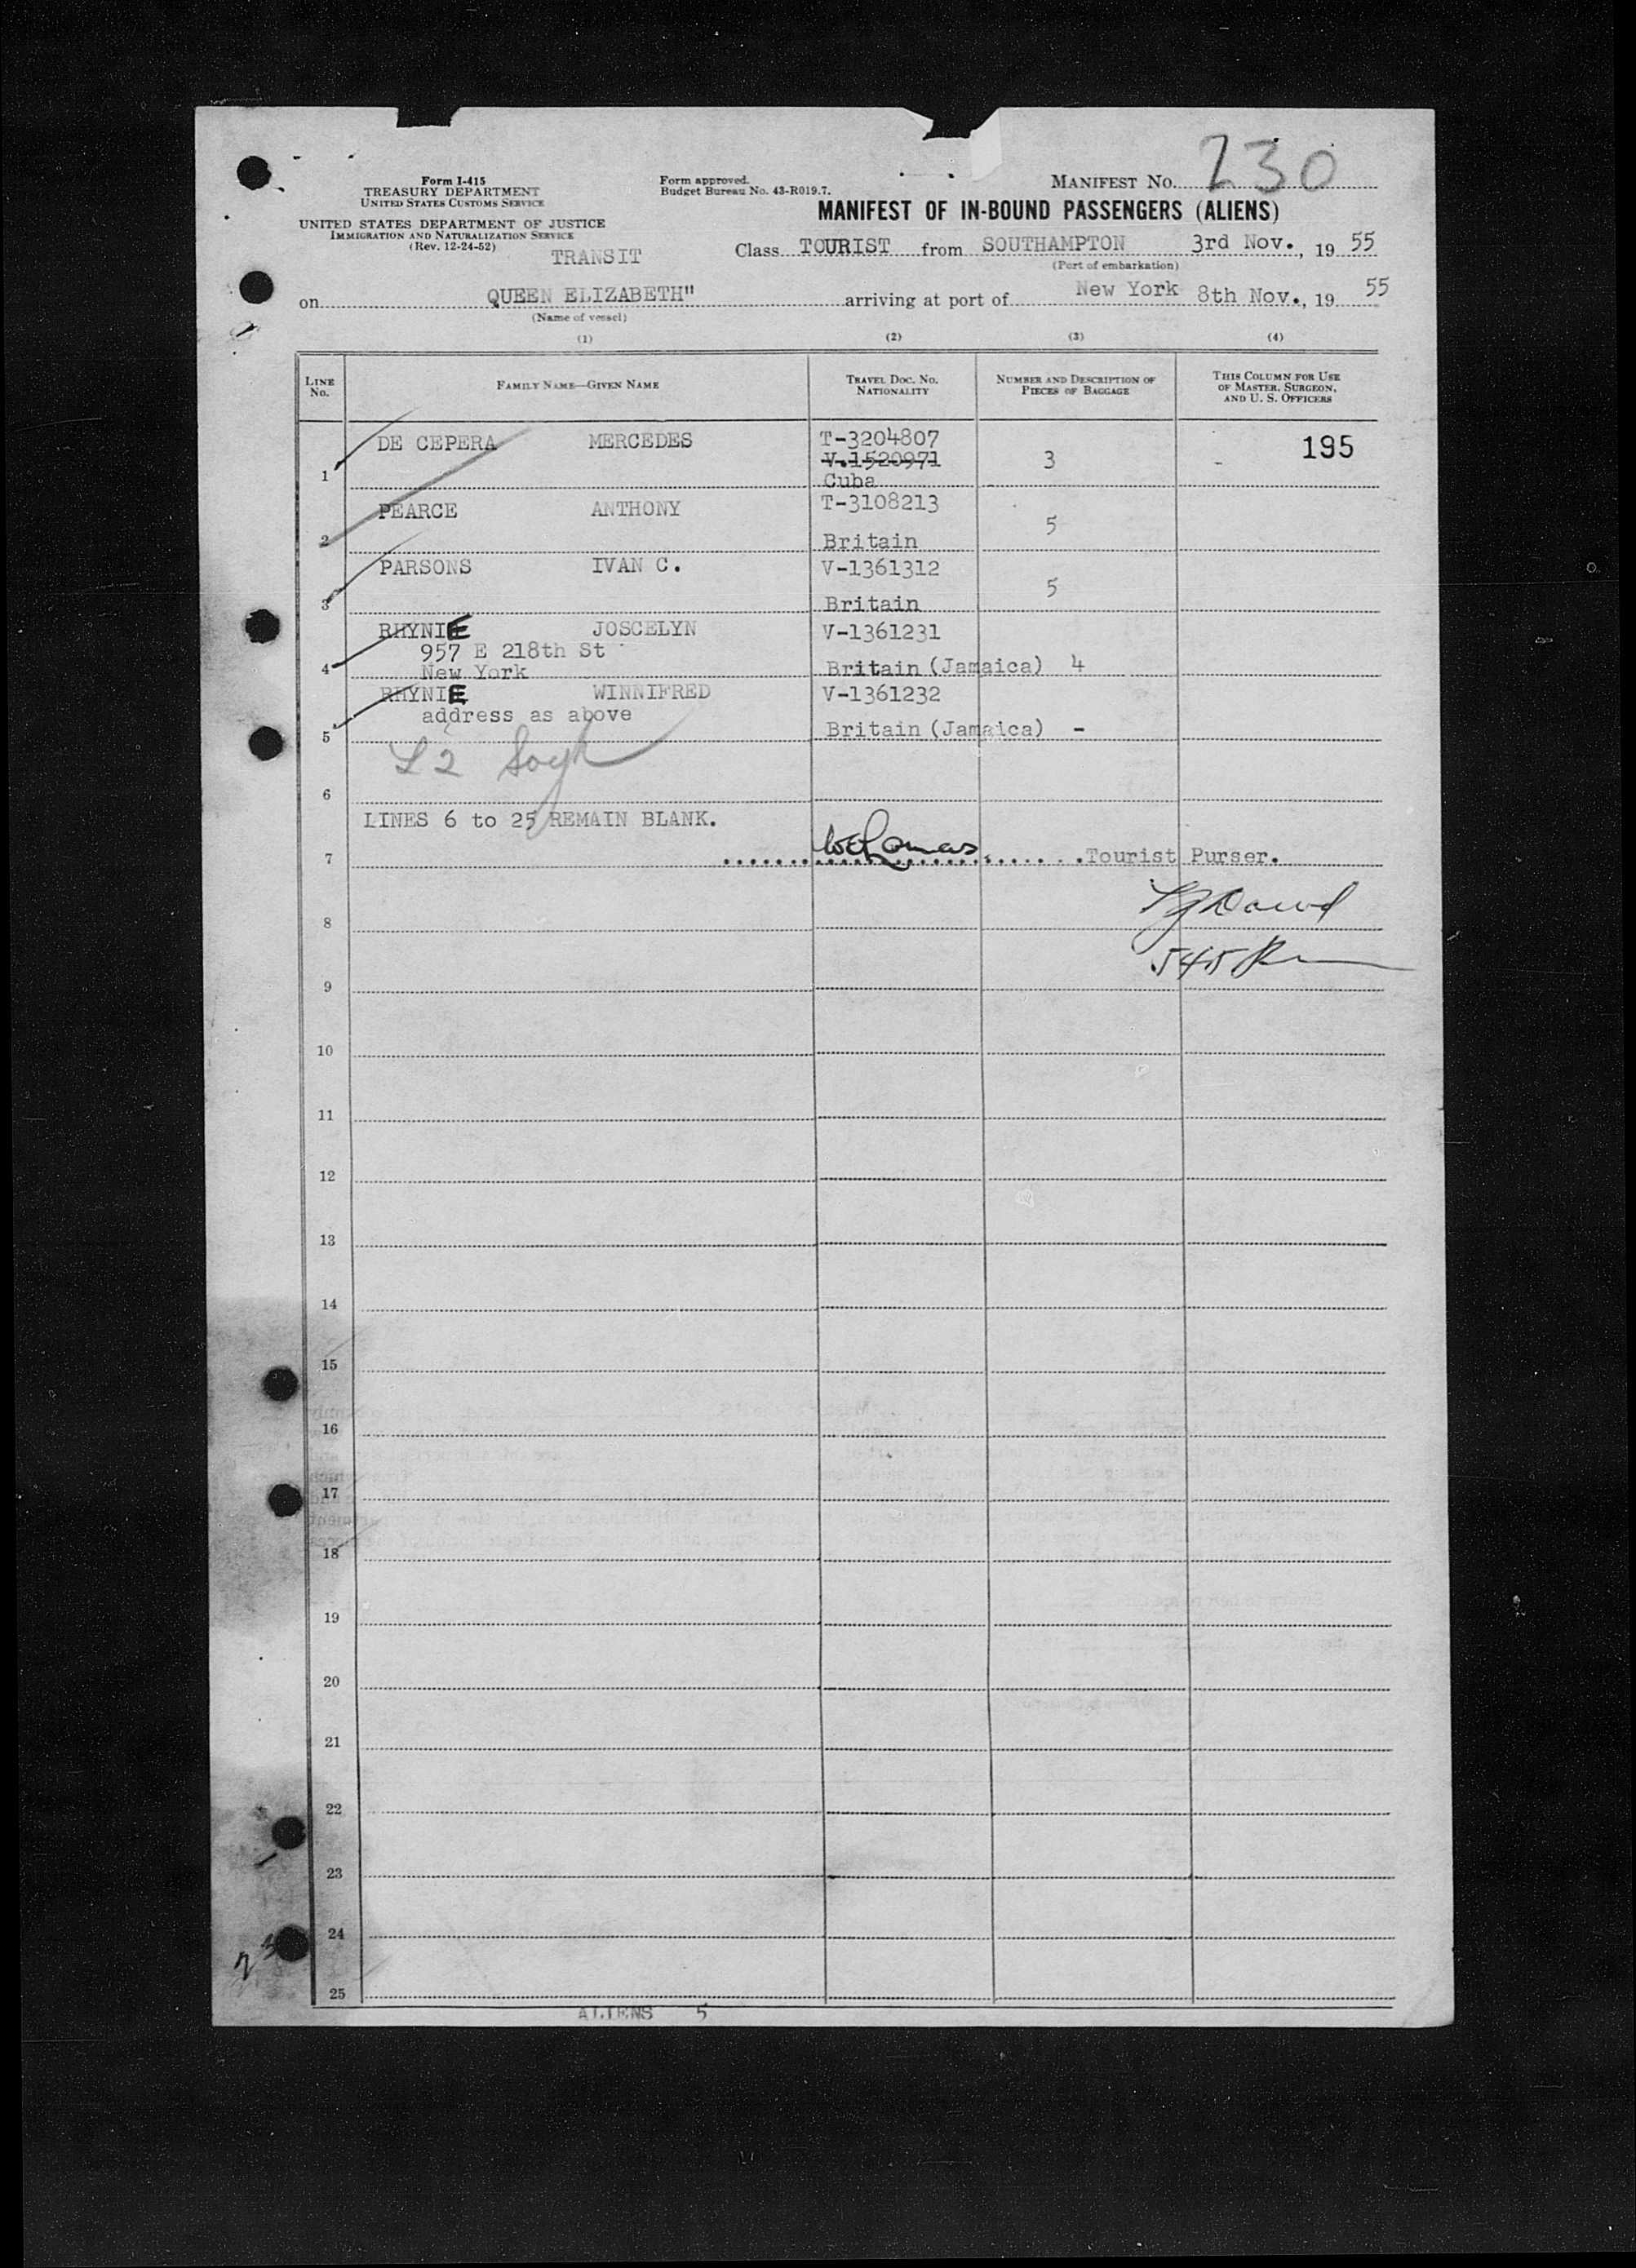 230
Form I-415
TREASURY DEPARTMENT
UNITED STATES CUSTOMS SERVICE
UNITED STATES DEPARTMENT OF JUSTICE
IMMIGRATION AND NATURALIZATION SERVICE
(Rev. 12-24-52)
Form approved.
Budget Bureau No. 43-R019.7.
MANIFEST NO.
MANIFEST OF IN-BOUND PASSENGERS (ALIENS)
TRANSIT
Class TOURIST from SOUTHAMPTON 3rd Nov., 19 55
(Port of embarkation)
on QUEEN ELIZABETH" arriving at port of New York 8th Nov., 19 55
(Name of vessel)
(1) (2) (3) (4)
LINE NO. FAMILY NAME—GIVEN NAME TRAVEL DOC. NO. NATIONALITY NUMBER AND DESCRIPTION OF PIECES OF BAGGAGE THIS COLUMN FOR USE OF MASTER, SURGEON, AND U. S. OFFICERS
DE CEPERA MERCEDES T-3204807 195
V.1520971 3 -
1 Cuba
PEARCE ANTHONY T-3108213
5
2 Britain
PARSONS IVAN C. V-1361312
5
3 Britain
RHYNIE JOSCELYN V-1361231
957 E 218th St
4 New York Britain (Jamaica) 4
RHYNIE WINNIFRED V-1361232
address as above
5 Britain (Jamaica) -
L2
6
LINES 6 to 25 REMAIN BLANK.
7 Tourist Purser.
8
9
10
11
12
13
14
15
16
17
18
19
20
21
22
23
24
25
ALIENS 5